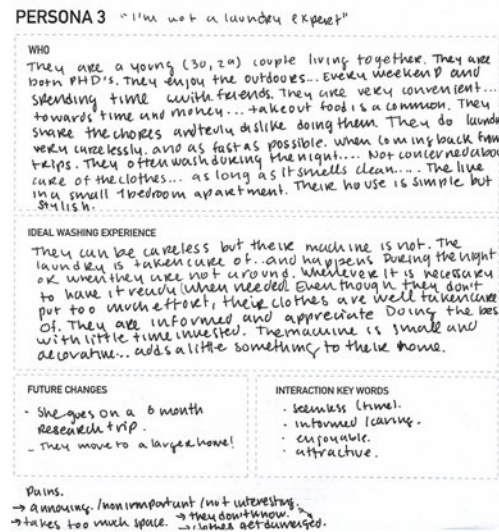 PERSONA 3 "I'm not a laundry expert"
WHO
They are a young (30, 29) couple living together. They are
both PHD's. They enjoy the outdoors... Every weekend and
spending time with friends. They are very convenient...
towards time and money... takeout food is a common. They
share the chores and truly dislike doing them. They do laundry
very carelessly. and as fast as possible. when coming back from
trips. They often wash during the night.... Not concerned about
care of the clothes... as long as it smells clean.... The live
in a small 1 bedroom apartment. Their house is simple but
stylish.
IDEAL WASHING EXPERIENCE
They can be careless but their machine is not. The
laundry is taken care of...and happens During the night
or when they are not around. Whenever it is necessary
to have it ready (when needed) Even though they don't
put too much effort, their clothes are well taken care
of. They are informed and appreciate Doing the best
with little time invested. The machine is small and
decorative... adds a little something to their home.
FUTURE CHANGES
- She goes on a 6 month
research trip.
- They move to a larger home!
INTERACTION KEY WORDS
· seemless (time).
· informed / caring.
· enjoyable.
· attractive.
Pains.
→ annoying. / non important / not interesting.
→ takes too much space. → they don't know.
→ clothes get damaged.